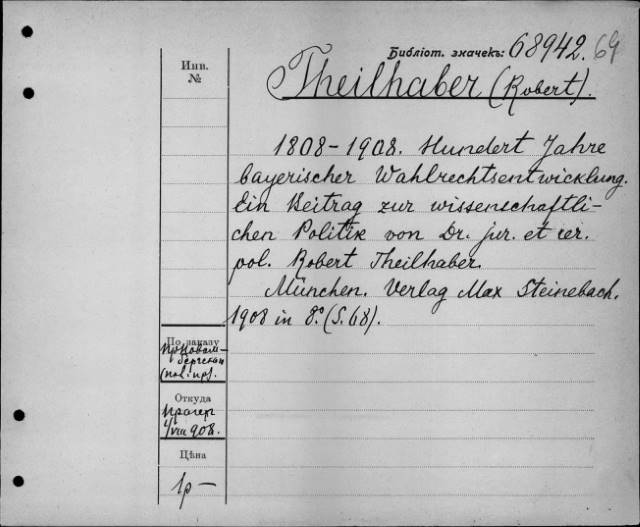 Библіот. значекъ: 68942. 69
Инв.
№
Theilhaber (Robert).
1808-1908. Hundert Jahre
bayerischer Wahlrechtsentwicklung.
Ein Beitrag zur wissenschaftli-
chen Politik von Dr. jur. et rer.
pol. Robert Theilhaber.
München. Verlag Max Steinebach.
1908 in 8.º (S. 68).
По заказу
(pol. пр).
Откуда
Прагер
1/VIII 908.
Цѣна
1р-